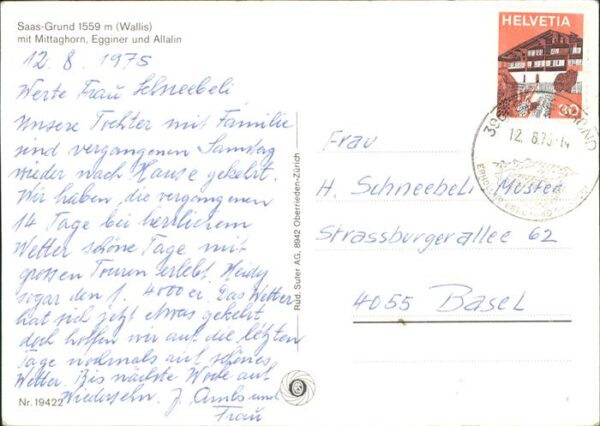 Saas-Grund 1559 m (Wallis)
mit Mittaghorn, Egginer und Allalin
12. 8. 1975
Werte Frau Schneebeli
Unsere Tochter mit Familie
sind vergangenen Samstag
wieder nach Hause gekehrt.
Wir haben die vergangenen
14 Tage bei herrlichem
Wetter schöne Tage mit
grossen Touren erlebt. Heidy
sogar den 1. 4000er. Das Wetter
hat sich jetzt etwas gekehrt
doch hoffen wir auf die letzten
Tage nochmals auf schönes
Wetter. Bis nächste Woche auf
Wiedersehn. J. und
Frau
Nr. 19422
Rüd. Suter AG, 8942 Oberrieden-Zürich
HELVETIA
30
12. 8.75-14
Frau
H. Schneebeli Muster
Strassburgerallee 62
4055 Basel